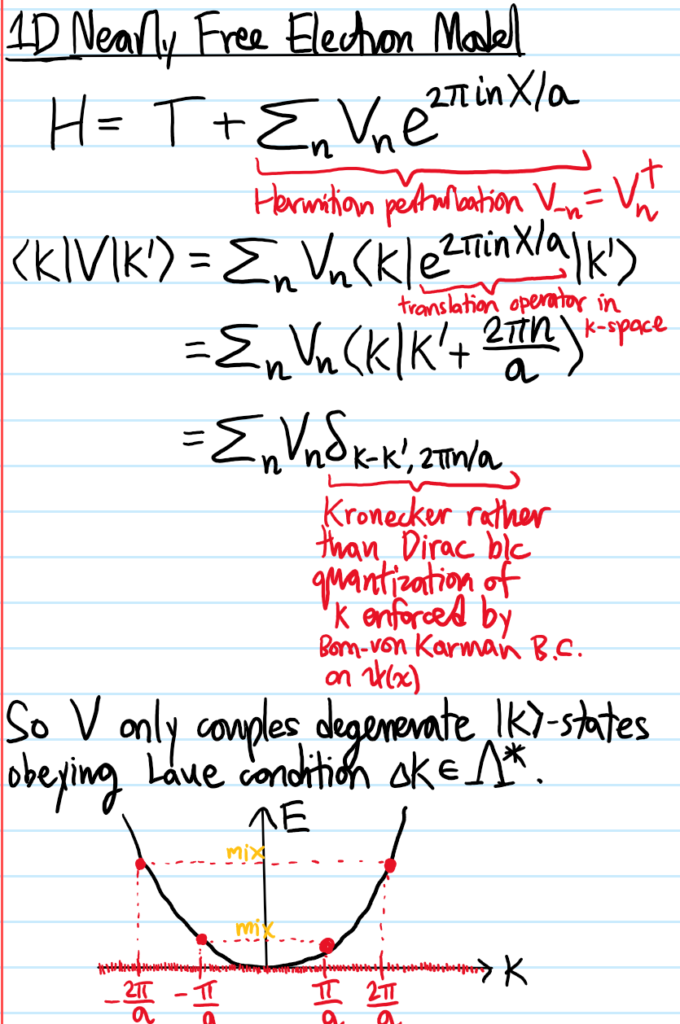 1D Nearly Free Electron Model
H = T + Σ_n V_n e^{2πinX/a}
Hermitian perturbation V_{-n} = V_n^†
⟨k|V|k'⟩ = Σ_n V_n ⟨k|e^{2πinX/a}|k'⟩
translation operator in
k-space
= Σ_n V_n ⟨k|k' + 2πn/a⟩
= Σ_n V_n δ_{k-k', 2πn/a}
Kronecker rather
than Dirac b/c
quantization of
k enforced by
Born-von Karman B.C.
on ψ(x)
So V only couples degenerate |k⟩-states
obeying Laue condition Δk ∈ Λ*.
E
mix
mix
k
-2π/a -π/a π/a 2π/a